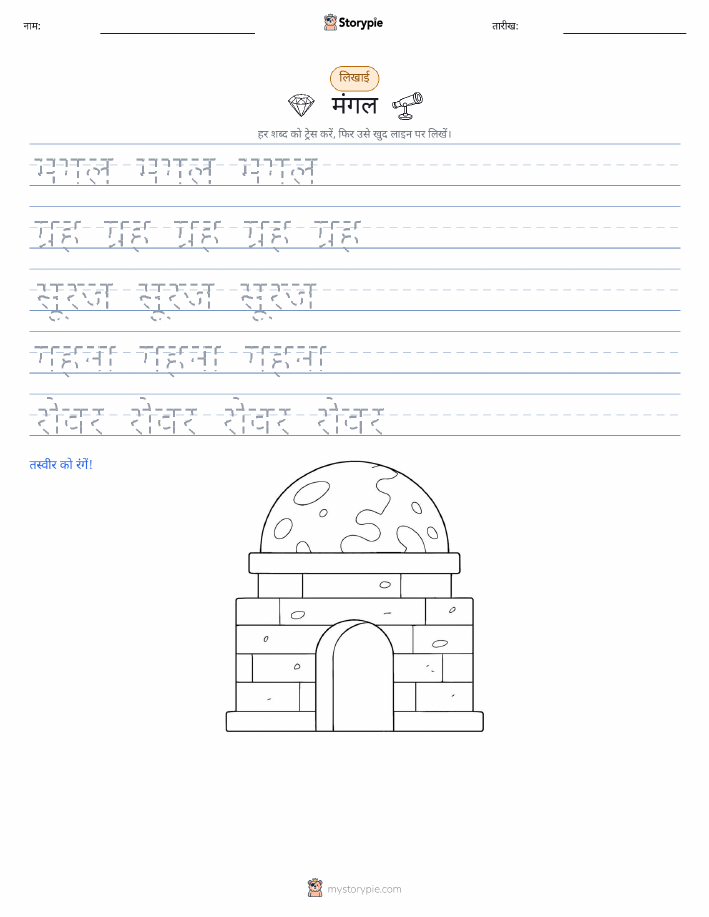 नाम:
Storypie
तारीख:
लिखाई
मंगल
हर शब्द को ट्रेस करें, फिर उसे खुद लाइन पर लिखें।
मंगल मंगल मंगल
ग्रह ग्रह ग्रह ग्रह ग्रह
सूरज सूरज सूरज
गहना गहना गहना
रोवर रोवर रोवर रोवर
तस्वीर को रंगें!
mystorypie.com